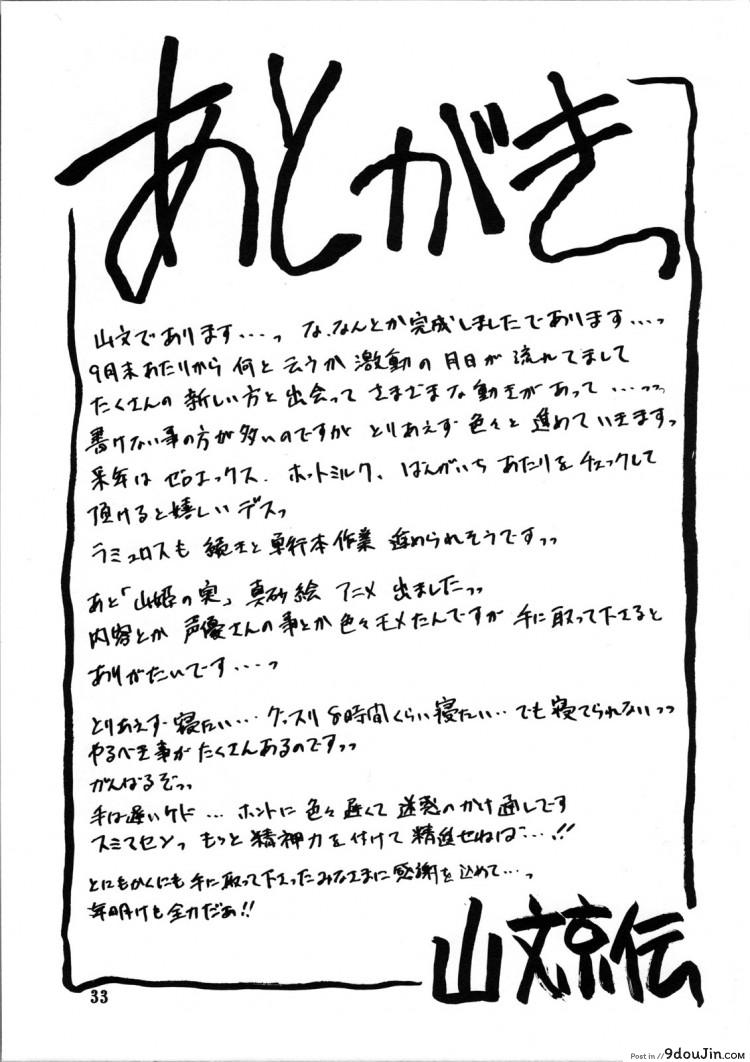 あとがき
山文であります・・・っ な、なんとか完成しましたであります・・・っ
9月末あたりから 何と云うか 激動の月日が流れてまして
たくさんの新しい方と出会って さまざまな動きがあって ・・・っっ
書けない事の方が多いのですが とりあえず色々と進めていきますっ
来年は ゼロエックス、ホットミルク、ばんがいち あたりをチェックして
頂けると嬉しいデスっ
ラミュロスも 続きと単行本作業 進められそうですっっ
あと「山姫の実」真砂絵 アニメ 出ましたっっ
内容とか 声優さんの事とか色々モメたんですが 手に取って下さると
ありがたいです・・・っ
とりあえず寝たい・・・グッスリ8時間くらい寝たい・・でも寝てられないっっ
やるべき事がたくさんあるのですっっ
がんばるぞっっ
手は遅いケド ・・・ ホントに色々遅くて 迷惑のかけ通しです
スミマセンっ もっと精神力を付けて精進せねば・・・!!
とにもかくにも手に取って下さったみなさまに感謝を込めて・・・っ
年明けも全力だぁ!!
山文京伝
33
Post in // 9douJin.com